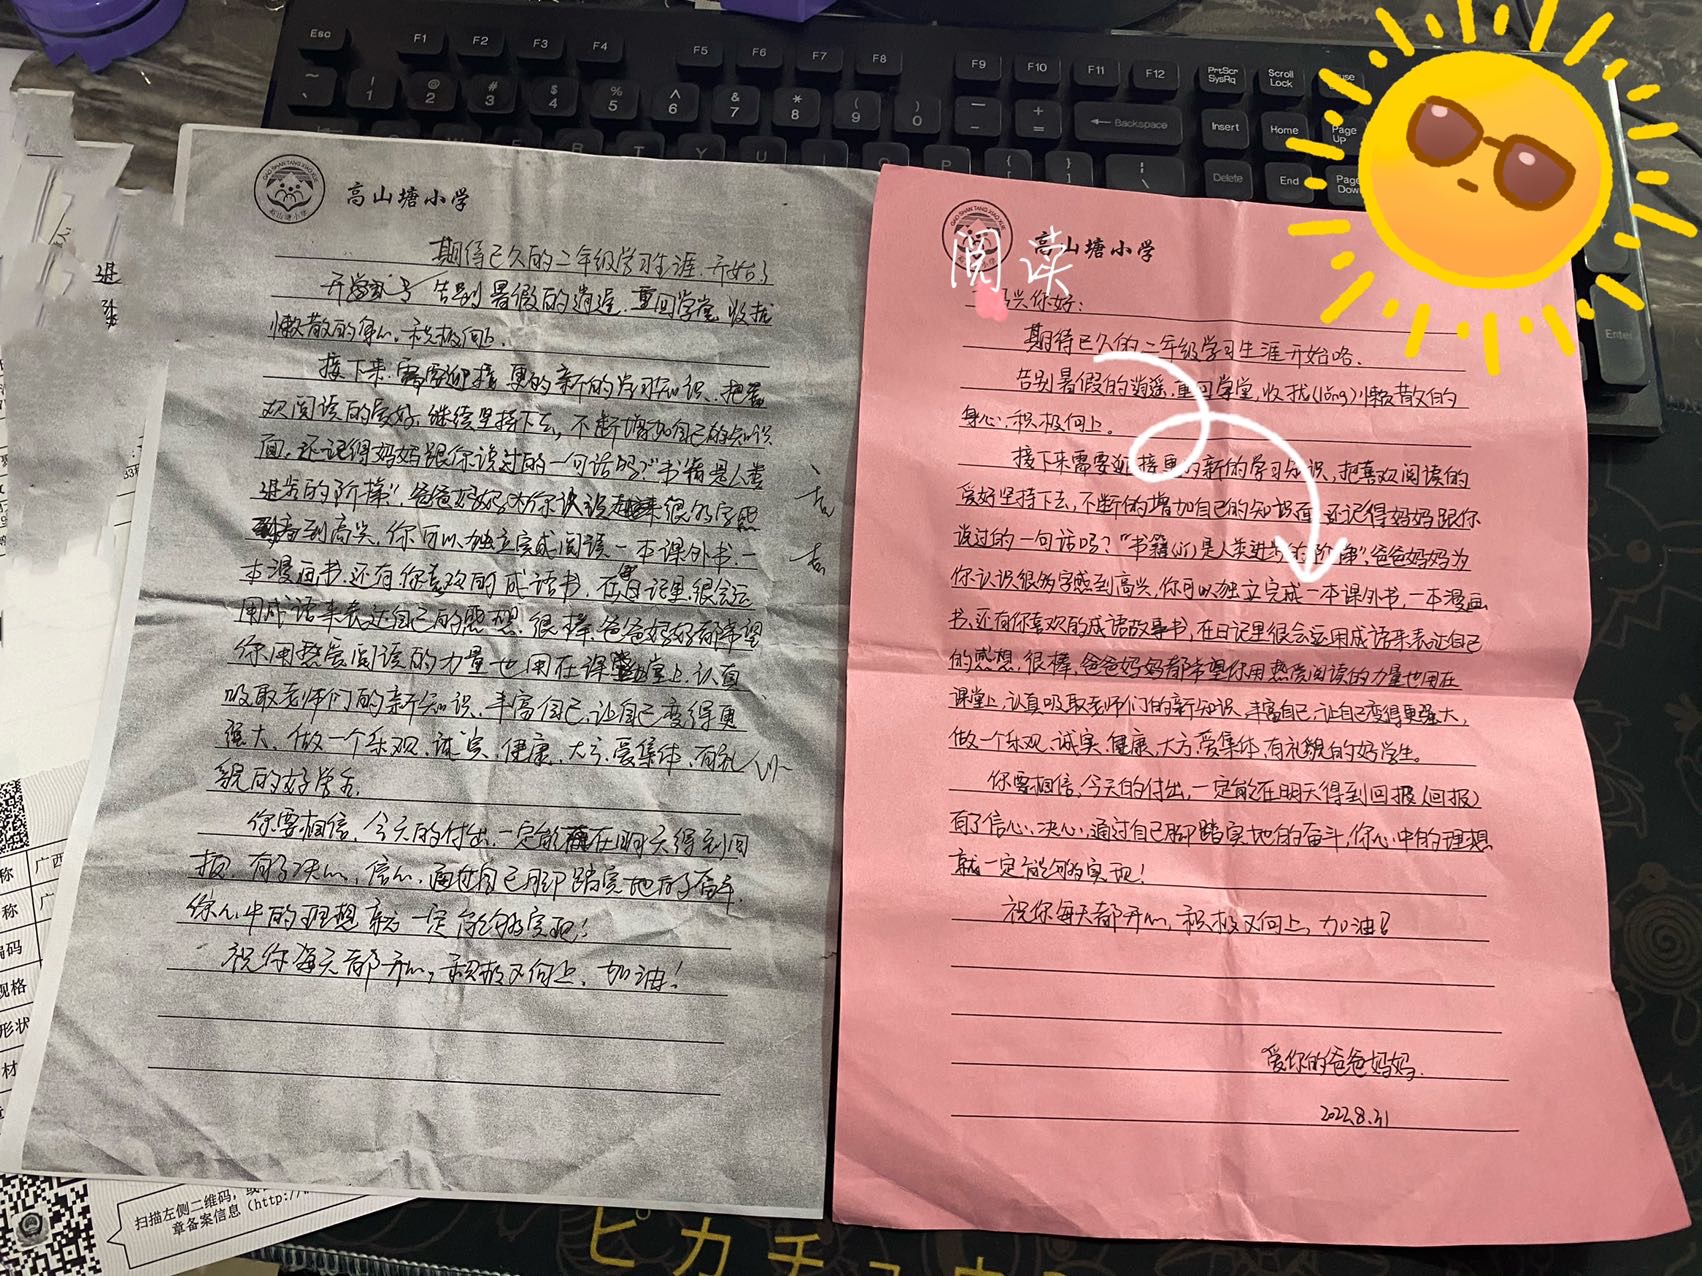 Esc F1 F2 F3 F4 F5 F6 F7 F8 F9 F10 F11 F12 PrtSc SysRq Scroll Lock
Backspace Insert Home Page Up
Delete End
Enter
高山塘小学
期待已久的二年级学习生涯.开始了
告别暑假的逍遥.重回学堂,收拢
懒散的身心.积极向上.
接下来.需要迎接更的新的学习知识.把喜
欢阅读的爱好.继续坚持下去,不断增加自己的知识
面.还记得妈妈跟你说过的一句话吗?"书籍是人类
进步的阶梯".爸爸妈妈为你认识很多字感
到高兴,你可以独立完成阅读一本课外书.一
本漫画书.还有你喜欢的成语书.在日记里.很会运
用成语来表达自己的感想.很棒.爸爸妈妈都希望
你用热爱阅读的力量也用在课堂上.认真
吸取老师们的新知识.丰富自己.让自己变得更
强大.做一个乐观.诚实.健康.大方.爱集体.有礼
貌的好学生.
你要相信.今天的付出.一定能在明天得到回
报.有了决心.信心.通过自己脚踏实地的奋斗.
你心中的理想就一定能够实现!
祝你每天都开心,积极又向上.加油!
高山塘小学
阅读
兴你好:
期待已久的二年级学习生涯开始咯.
告别暑假的逍遥.重回学堂,收拢(lǒng)懒散的
身心,积极向上。
接下来需要迎接更的新的学习知识,把喜欢阅读的
爱好坚持下去,不断的增加自己的知识面.还记得妈妈跟你
说过的一句话吗?"书籍(jí)是人类进步的阶梯",爸爸妈妈为
你认识很多字感到高兴,你可以独立完成一本课外书,一本漫画
书,还有你喜欢的成语故事书,在日记里很会运用成语来表达自己
的感想,很棒,爸爸妈妈都希望你用热爱阅读的力量也用在
课堂上,认真吸取老师们的新知识,丰富自己,让自己变得更强大,
做一个乐观、诚实、健康、大方、爱集体、有礼貌的好学生。
你要相信,今天的付出,一定能在明天得到回报(回报)
有了信心、决心、通过自己脚踏实地的奋斗,你心中的理想
就一定能够实现!
祝你每天都开心,积极又向上,加油!
爱你的爸爸妈妈.
2022.8.31
扫描左侧二维码,
章备案信息(http://
ピカチュウ